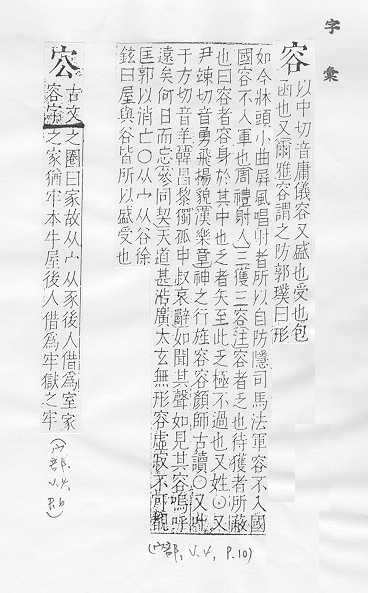 字彙
容 以中切音庸儀容又盛也受也包
函也又爾雅容謂之防郭璞曰形
如今牀頭小曲屏風唱射者所以自防隱司馬法軍容不入國
國容不入軍也周禮射人三獲三容注容者乏也待獲者所蔽
也曰容者容身於其中也乏者矢至此乏極不過也又姓○又
尹竦切音勇飛揚貌漢樂章神之行旌容容顏師古讀○又叶
于方切音羊韓昌黎獨孤申叔哀辭如聞其聲如見其容嗚呼
遠矣何日而忘參同契天道甚浩廣太玄無形容虛寂不可覩
匡郭以消亡○从宀从谷徐
鉉曰屋與谷皆所以盛受也
(宀部, V.4, P.10)
㝐 古文 之圈曰家故从宀从豕後人借為室家
容 之家猶牢本牛屋後人借為牢獄之牢
(宀部, V.4, P.6)